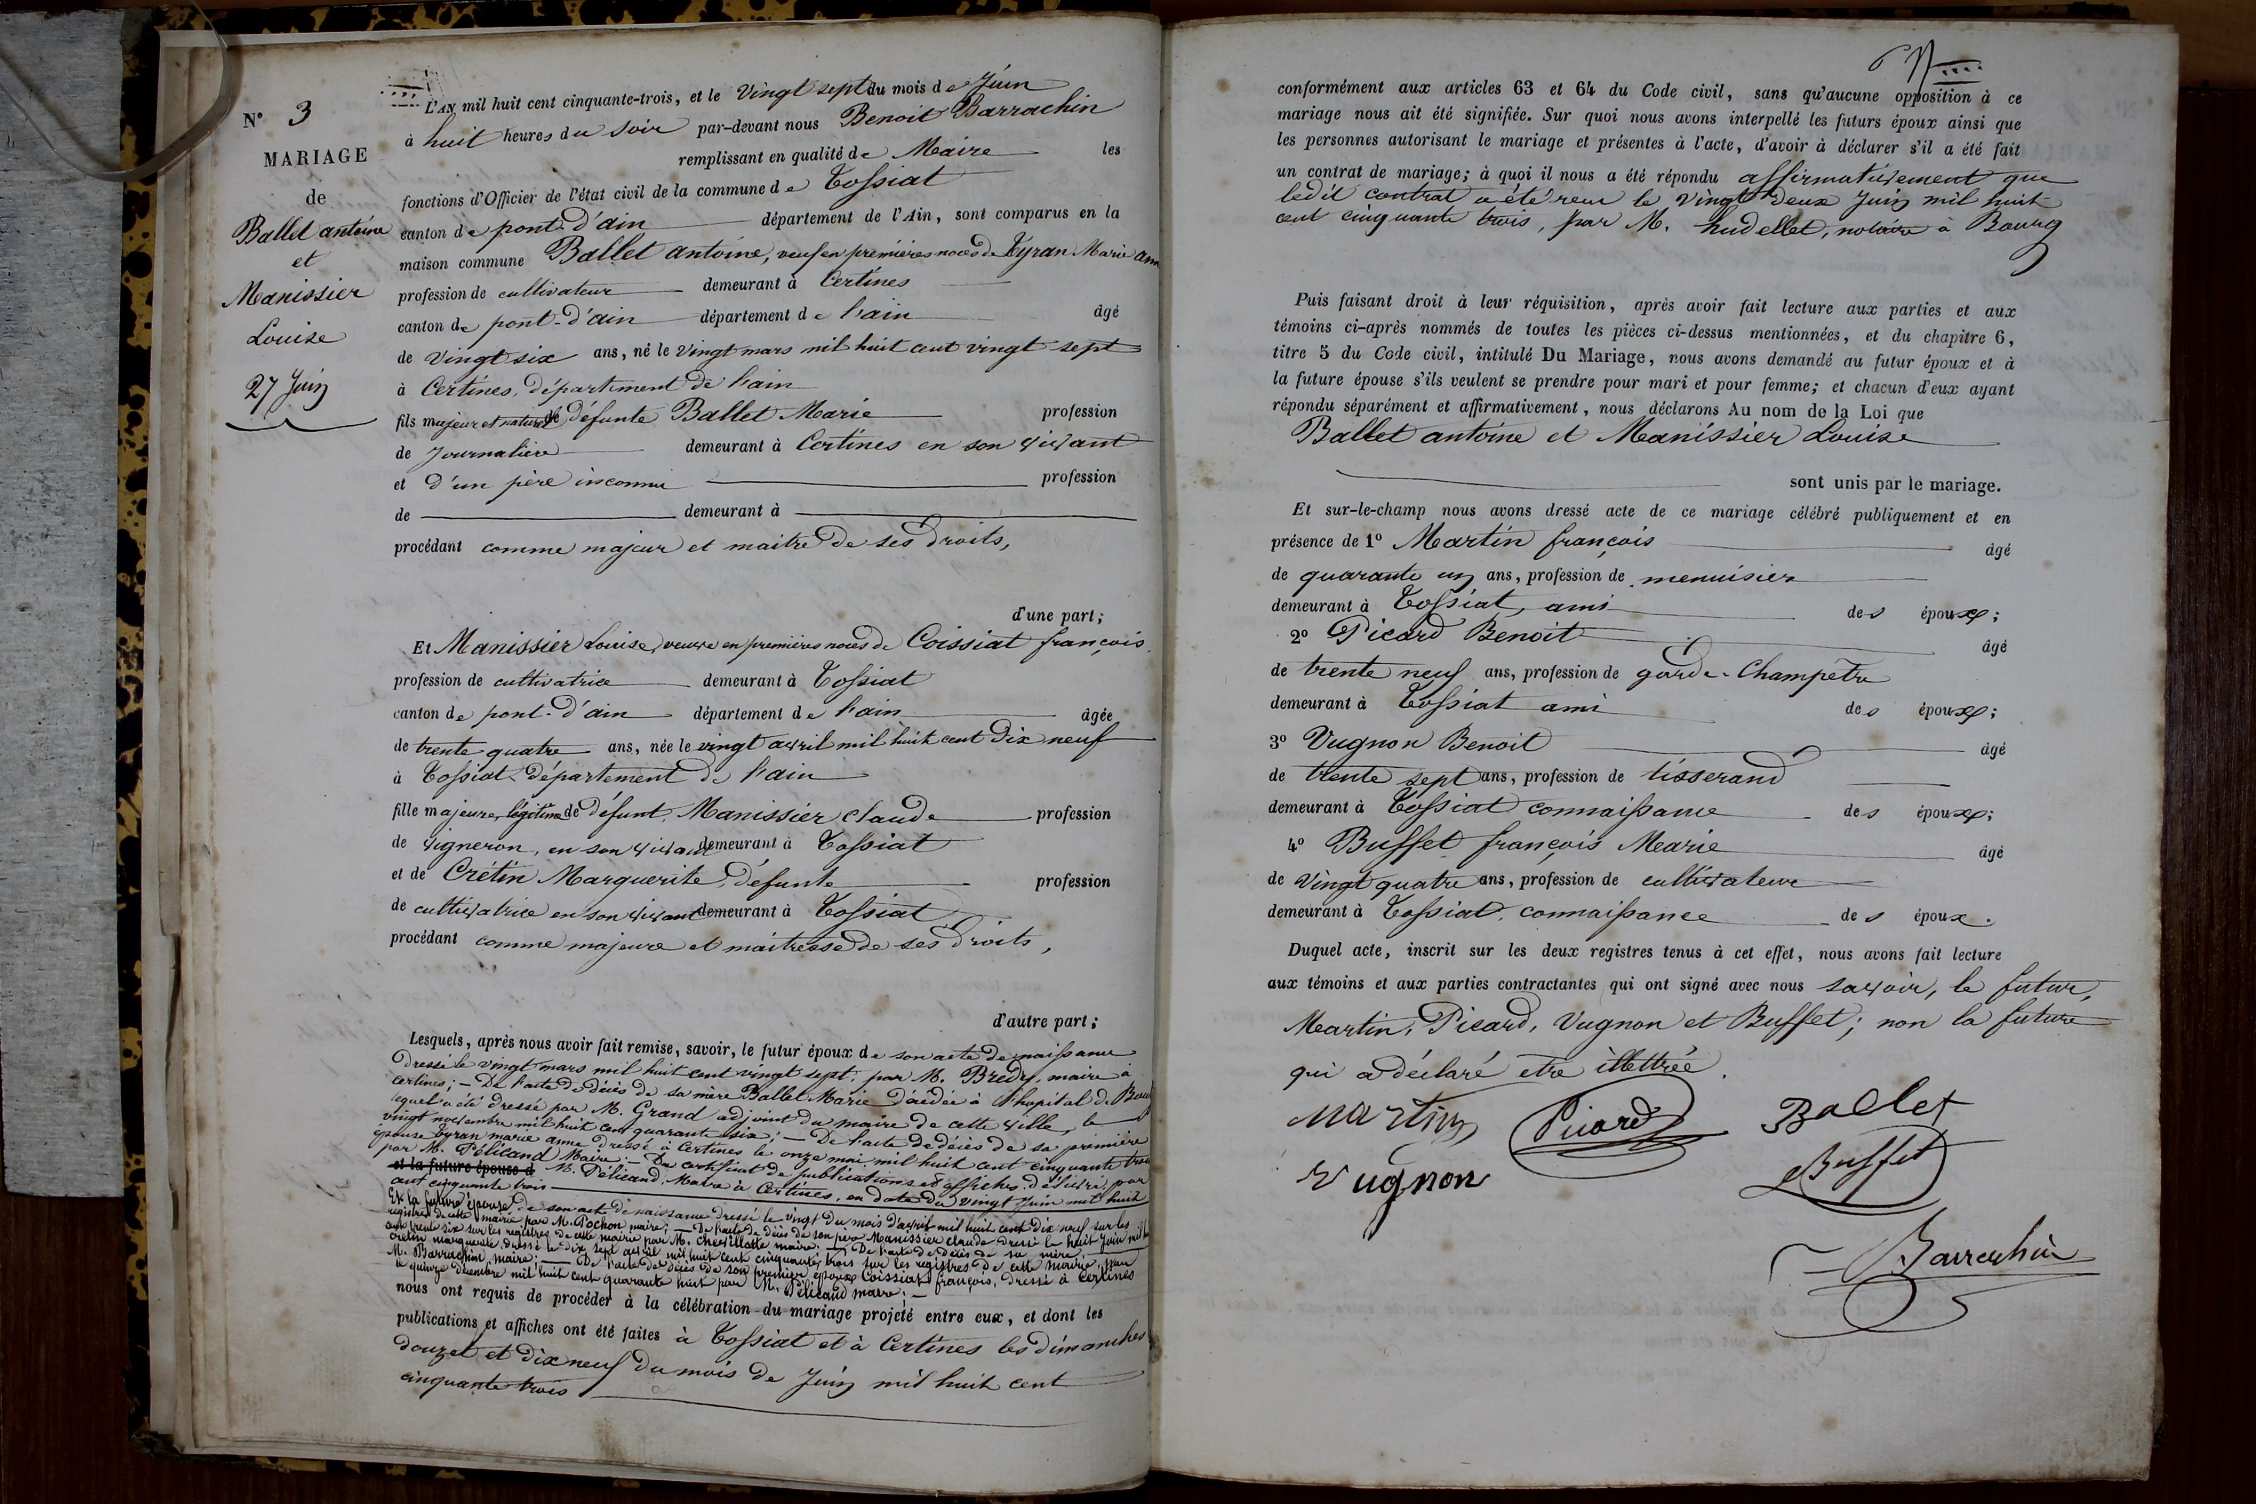 N° 3
MARIAGE
de
Ballet antoine
et
Manissier
Louise
27 Juin
L'AN mil huit cent cinquante-trois, et le Vingt sept du mois de Juin
à huit heures du soir par-devant nous Benoit Barrachin
remplissant en qualité de Maire les
fonctions d'Officier de l'état civil de la commune de Tossiat
canton de pont-d'ain département de l'Ain, sont comparus en la
maison commune Ballet antoine, veuf en premières noces de Tyran Marie ann
profession de cultivateur demeurant à Certines
canton de pont-d'ain département de l'ain âgé
de vingt six ans, né le vingt mars mil huit cent vingt sept
à Certines, département de l'ain
fils majeur et naturel de défunte Ballet Marie profession
de Journalière demeurant à Certines en son vivant
et d'un père inconnu profession
de demeurant à
procédant comme majeur et maitre de ses droits,
d'une part;
Et Manissier Louise, veuve en premières noces de Coissiat françois
profession de cultivatrice demeurant à Tossiat
canton de pont-d'ain département de l'ain âgée
de trente quatre ans, née le vingt avril mil huit cent dix neuf
à Tossiat, département de l'ain
fille majeure, légitime de défunt Manissier claude profession
de vigneron, en son vivant demeurant à Tossiat
et de Crétin Marguerite, défunte profession
de cultivatrice en son vivant demeurant à Tossiat
procédant comme majeure et maitresse de ses droits,
d'autre part;
Lesquels, après nous avoir fait remise, savoir, le futur époux de son acte de naissance
dressé le vingt mars mil huit cent vingt sept, par M. Bredy, maire à
Certines; — De l'acte de décès de sa mère Ballet Marie, décédée à l'hopital de
lequel a été dressé par M. Grand adjoint du maire de cette ville, le
vingt novembre mil huit cent quarante six; — De l'acte de décès de sa première
épouse Tyran marie anne dressé à Certines le onze mai mil huit cent cinquante trois
par M. Pélicand Maire. — Du certificat de publications et affiches délivré par
et la future épouse d M. Pélicand, Maire à Certines, en date du vingt Juin mil huit
cent cinquante trois
Et la future épouse de son acte de naissance dressé le vingt du mois d'avril mil huit cent dix neuf sur les
registres de cette mairie par M. Pochon maire; — De l'acte de décès de son père Manissier claude dressé le huit Juin mil
cent trente six sur les registres de cette mairie par M. Chevillotte maire. — De l'acte de décès de sa mère,
Crétin marguerite dressé le dix sept avril mil huit cent cinquante trois sur les registres de cette mairie, par
M. Barrachin, maire; — De l'acte de décès de son premier époux Coissiat françois, dressé à Certines
le quinze décembre mil huit cent quarante huit par M. Pélicand maire. —
nous ont requis de procéder à la célébration du mariage projeté entre eux, et dont les
publications et affiches ont été faites à Tossiat et à Certines les dimanches
douze et dix neuf du mois de Juin mil huit cent
cinquante trois
conformément aux articles 63 et 64 du Code civil, sans qu'aucune opposition à ce
mariage nous ait été signifiée. Sur quoi nous avons interpellé les futurs époux ainsi que
les personnes autorisant le mariage et présentes à l'acte, d'avoir à déclarer s'il a été fait
un contrat de mariage; à quoi il nous a été répondu affirmativement que
ledit contrat a été reçu le vingt deux Juin mil huit
cent cinquante trois, par M. hudellet, notaire à Bourg
Puis faisant droit à leur réquisition, après avoir fait lecture aux parties et aux
témoins ci-après nommés de toutes les pièces ci-dessus mentionnées, et du chapitre 6,
titre 5 du Code civil, intitulé Du Mariage, nous avons demandé au futur époux et à
la future épouse s'ils veulent se prendre pour mari et pour femme; et chacun d'eux ayant
répondu séparément et affirmativement, nous déclarons Au nom de la Loi que
Ballet antoine et Manissier Louise
sont unis par le mariage.
Et sur-le-champ nous avons dressé acte de ce mariage célébré publiquement et en
présence de 1° Martin françois âgé
de quarante un ans, profession de menuisier
demeurant à Tossiat, ami des époux;
2° Picard Benoit âgé
de trente neuf ans, profession de garde-Champêtre
demeurant à Tossiat ami des époux;
3° Vugnon Benoit âgé
de trente sept ans, profession de tisserand
demeurant à Tossiat connaissance des époux;
4° Buffet françois Marie âgé
de vingt quatre ans, profession de cultivateur
demeurant à Tossiat, connaissance des époux.
Duquel acte, inscrit sur les deux registres tenus à cet effet, nous avons fait lecture
aux témoins et aux parties contractantes qui ont signé avec nous savoir, le futur,
Martin, Picard, Vugnon et Buffet; non la future
qui a déclaré etre illettrée.
Martin Picard Ballet
Vugnon Buffet
Barrachin